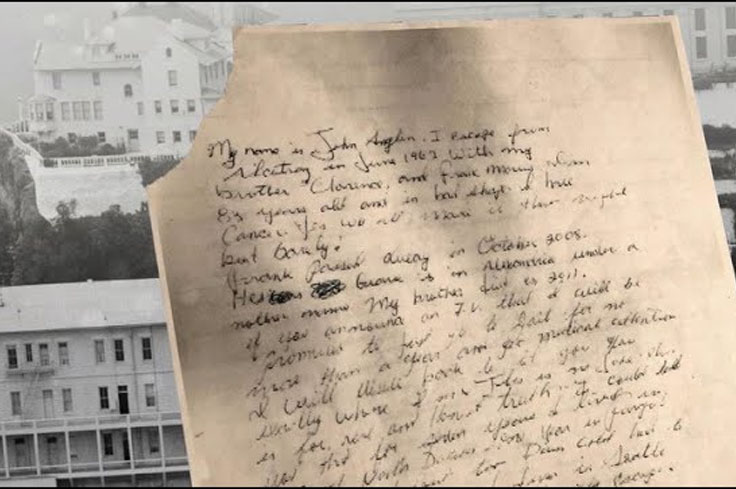 My name is John Anglin. I escape from
Alcatraz in June 1962 with my
brother Clarence, and Frank Morris. I'm
83 years old and in bad shape. I have
Cancer. Yes we all made it that night
but barly!
Frank passed away in October 2008.
His grave is in Alexandria under a
nother name. My brother died in 2011.
If you announce on T.V. that I will be
promised to first go to Jail for no
more than a year and get medical attention
I will write back to let you know
exactly where I am. This is no joke
is for real and honest truth. I could tell
you that for seven years of living in
North Dakota year in
in Seattle